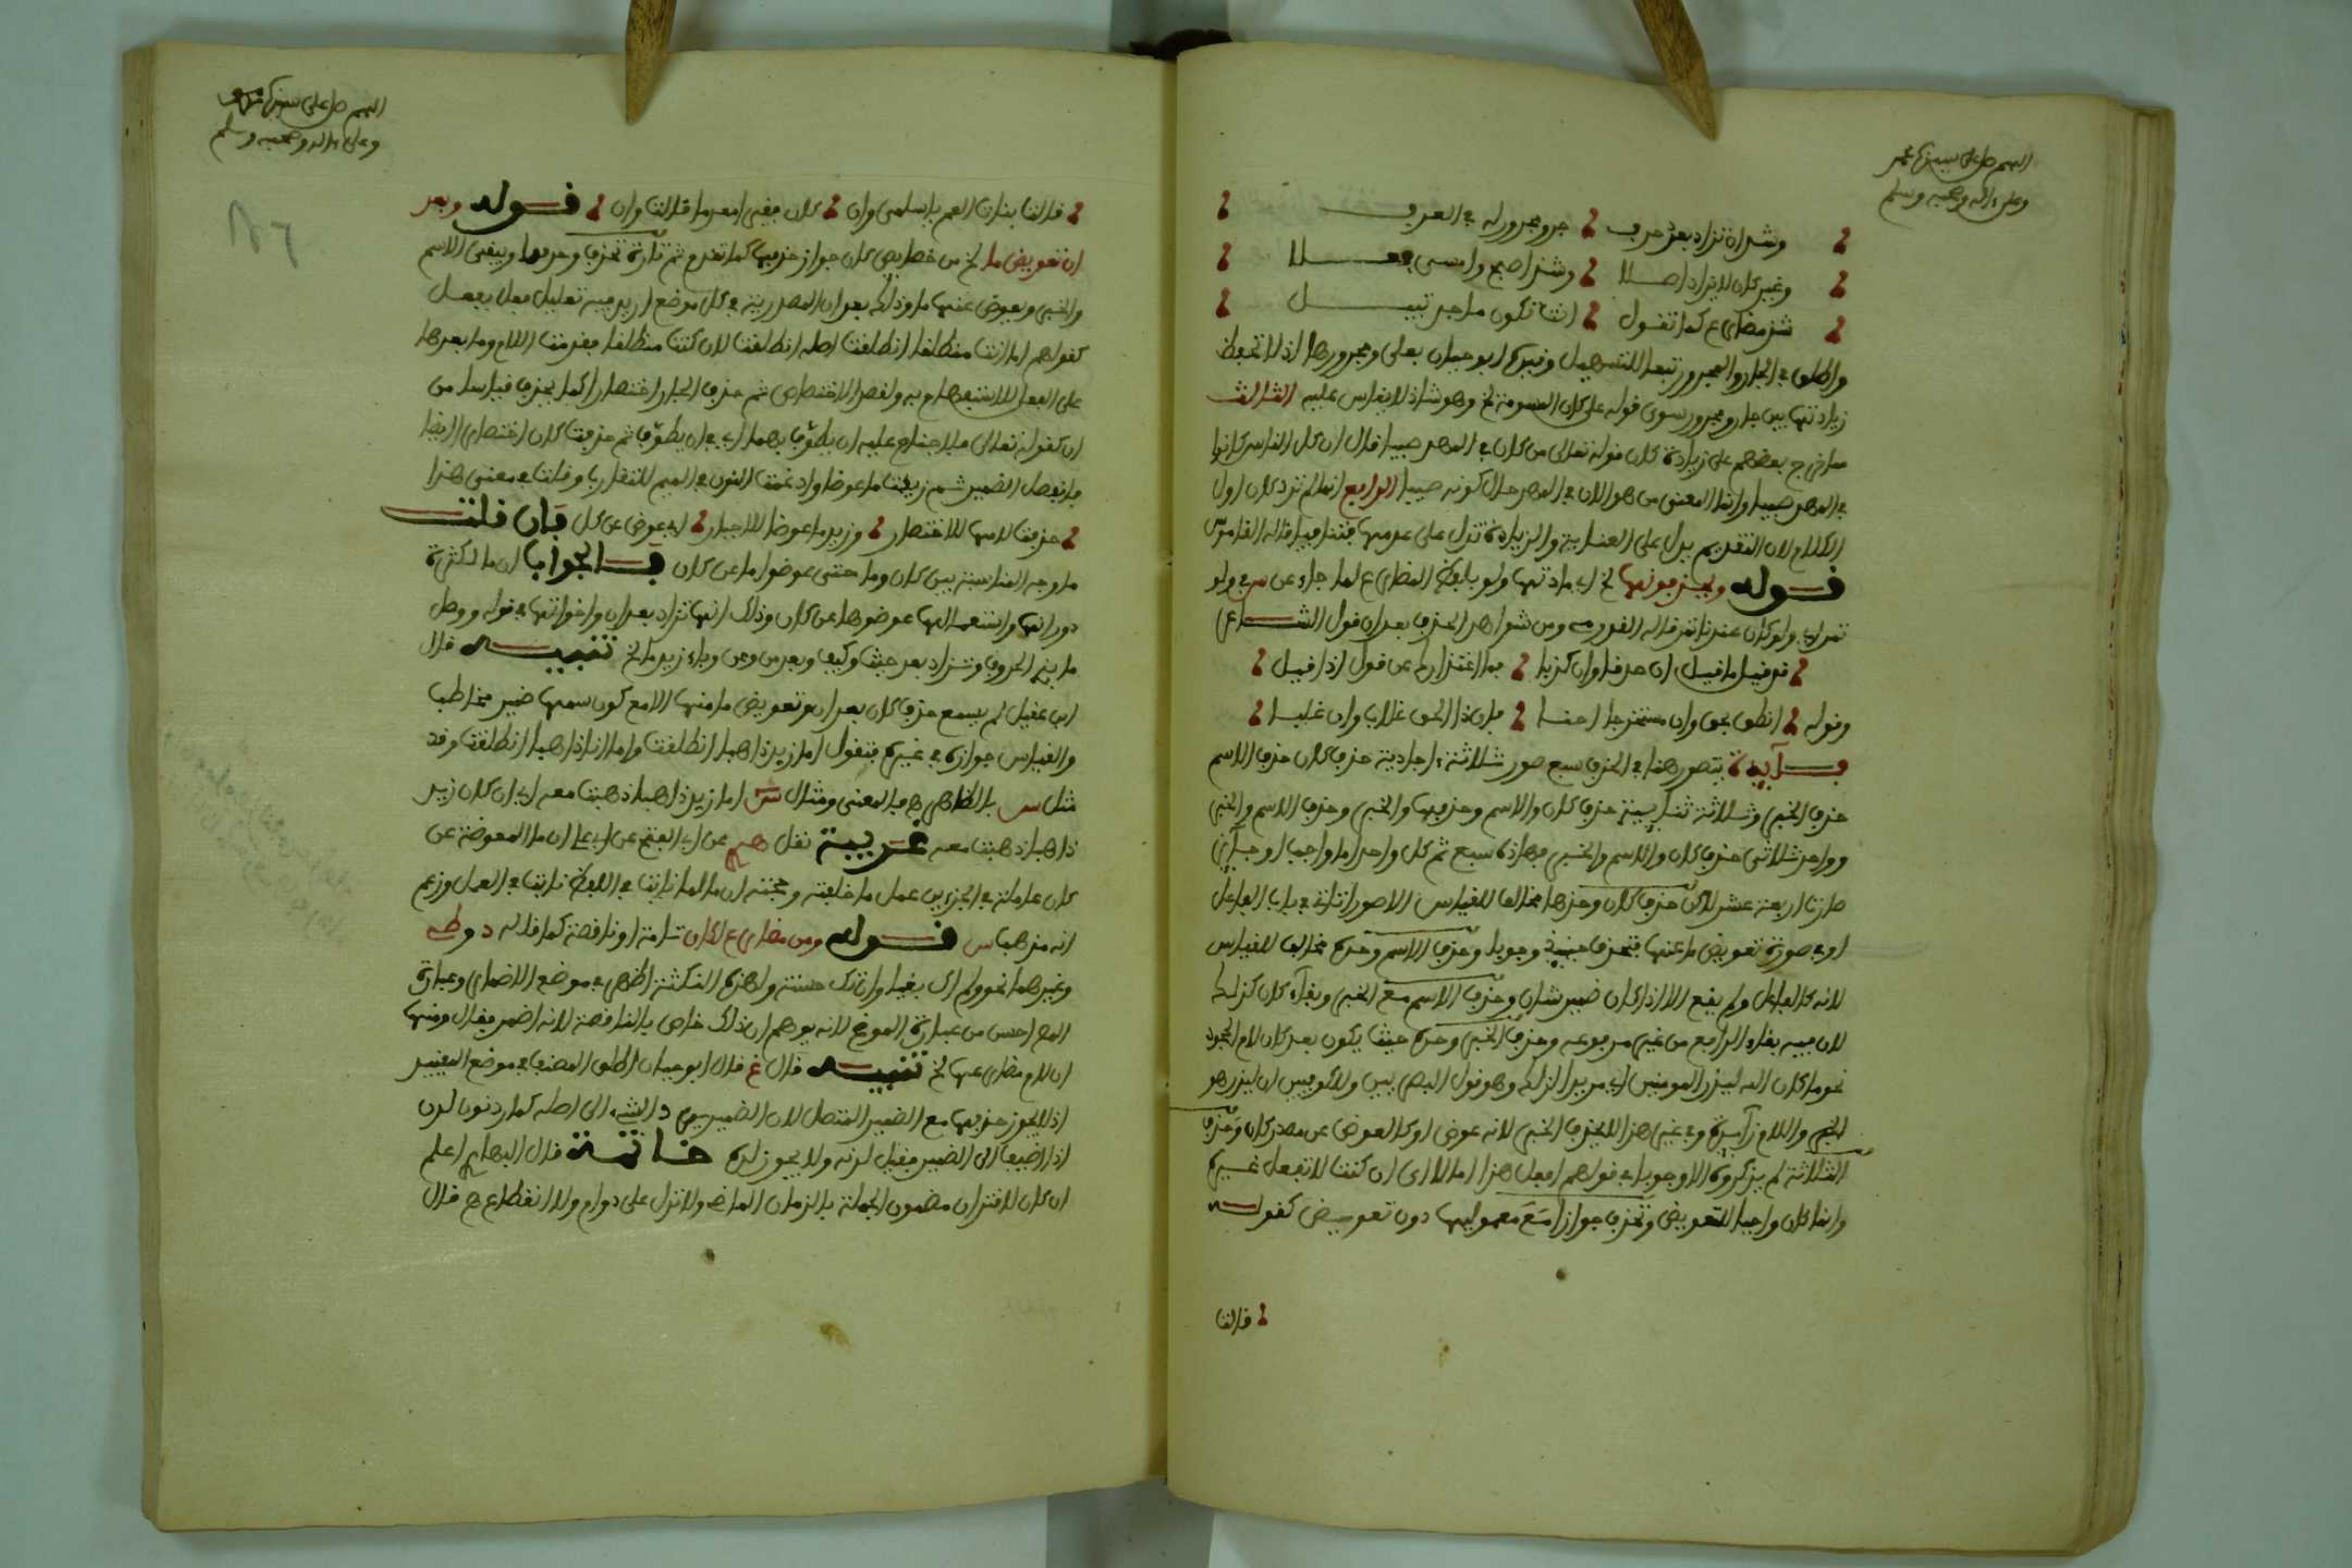 اللهم صل على سيدنا محمد
وعلى ءاله وصحبه وسلم
وشذاة تزاد بعد حرف جر ومجرور له في العرف
وغير كان لا يزاد اصلا وشذ اصبح وامسى فعلا
شذ مضارع كما تقول انت تكون ماجد نبيل
واطلق في الجار والمجرور تبعا للتسهيل وقيده ابو حيان بعلى ومجرورها اذ لا تحفظ
زيادتها بين جار ومجرور سوى قوله على كان المسومة لخ وهو شاذ لا يقاس عليه الثالث
خرج بعضهم على زيادة كان قوله تعالى من كان في المهد صبيا قال ان كل الناس كانوا
في المهد صبيا وانما المعنى من هو الان في المهد حال كونه صبيا الرابع انما لم تزد كان اول
الكلام لان التقديم يدل على العناية والزيادة تدل على عدمها فتنافيا قاله القاموس
قوله ويحذفونها لخ اي مادتها ولو بلفظ المضارع لما جاء عن س في ولو
تمر اي ولو كان عندنا تمر قاله ومن شواهد الحذف بعد ان قول الشاعر
قد قيل ما قيل ان صدقا وان كذبا فما اعتذارك عن قول اذا قيل
وقوله انطق بحق وان مستخرجا احنا فان ذا الحق غلاب وان غلبا
فايدة يتصور هنا في الحذف سبع صور ثلاثة احادية حذف كان حذف الاسم
حذف الخبر وثلاثة ثنايية حذف كان والاسم وحذفها والخبر وحذف الاسم والخبر
وواحد ثلاثي حذف كان والاسم والخبر فهاذه سبع ثم كل واحد اما واجبا او جايزا
صارت اربعة عشر لاكن حذف كان وحدها مخالف للقياس الا صورا تاتي في باب الفاعل
او في صورة تعويض ما عنها فتحذف حينيذ وجوبا وحذف الاسم وحده مخالف للقياس
لانه كالفاعل ولم يقع الا اذا كان ضمير شان وحذف الاسم مع الخبر وبقاء كان كذلك
لان فيه بقاء الرافع من غير مرفوعه وحذف الخبر وحده حيث يكون بعد كان لام الجحود
نحو ما كان الله ليذر المومنين اي مريدا لذلك وهو قول البصريين والكوفيين ان ليذر هو
الخبر واللام زايدة وفي غير هذا لا يحذف الخبر لانه عوض او كالعوض عن مصدر كان وحذف
الثلاثة لم يذكروه الا وجوبا في قولهم افعل هذا اما لا اي ان كنت لا تفعل غيره
وانما كان واجبا للتعويض وتحذف جوازا مع معموليها دون تعويض كقوله
قالت
اللهم صل على سيدنا محمد
وعلى ءاله وصحبه وسلم
قالت بنات العم يا سلمى وان كان فقيرا معدما قالت وان قوله وبعد
ان تعويض ما لخ من خصايص كان جواز حذفها كما تقدم ثم تارة تحذف وحدها ويبقى الاسم
والخبر ويعوض عنها ما وذلك بعد ان المصدرية في كل موضع اريد فيه تعليل فعل بفعل
كقولهم اما انت منطلقا انطلقت اصله انطلقت لان كنت منطلقا فقدمت اللام وما بعدها
على الفعل للاهتمام به ولقصد الاختصاص ثم حذف الجار اختصارا كما يحذف قياسا من
ان كقوله تعالى فلا جناح عليه ان يطوف بهما اي في ان يطوف ثم حذفت كان اختصارا ايضا
فانفصل الضمير ثم زيدت ما عوضا وادغمت النون في الميم للتقارب وقلت في معنى هذا
حذفت لامها للاختصار وزيد ما عوضا للاجبار اي عوض عن كل فان قلت
ما وجه المناسبة بين كان وما حتى عوضوا ما عن كان فالجواب ان ما لكثرة
دورانها واستعمالها عوضوها عن كان وذلك انها تزاد بعد ان واخواتها في قوله ووصل
ما بذي الحروف وتزاد بعد حيث وكيف وبعد من وعن وباء زيد ما لخ تنبيه قال
ابن عقيل لم يسمع حذف كان بعد ان وتعويض ما منها الا مع كون اسمها ضمير مخاطب
والقياس جوازه في غيره فتقول اما زيد ذاهبا انطلقت واما انا ذاهبا انطلقت وقد
مثل س بالظاهر ومثال س اما زيد ذاهبا ذهبت معه اي ان كان زيد
ذاهبا ذهبت معه غريبة نقل عن ابي الفتح عن ابي علي ان ما المعوضة عن
كان عاملة في الجزءين عمل ما خلفته وحجته ان ما لما نابت في اللفظ نابت في العمل وزعم
انه مذهب س قوله ومن مضارع لكان تامة او ناقصة كما قاله د وطه
وغيرهما نحو ولم اك بغيا وان تك حسنة ولهذه النكتة اظهر في موضع الاضمار وعبارة
المص احسن من عبارة الموضح لانه يوهم ان ذلك خاص بالناقصة لانه اضمر فقال ومنها
ان لام مضارعها لخ تنبيه قال غ قال ابو حيان اطلق المصنف في موضع التقييد
اذ لا يجوز حذفها مع الضمير المتصل لان الضمير يرد الشيء الى اصله كما ردوا نون لدن
اذا اضيف الى الضمير فقيل لدنه ولا يجوز لده خاتمة قال البهاري اعلم
ان كان لاقتران مضمون الجملة بالزمان الماضي ولا تدل على دوام ولا انقطاع قال